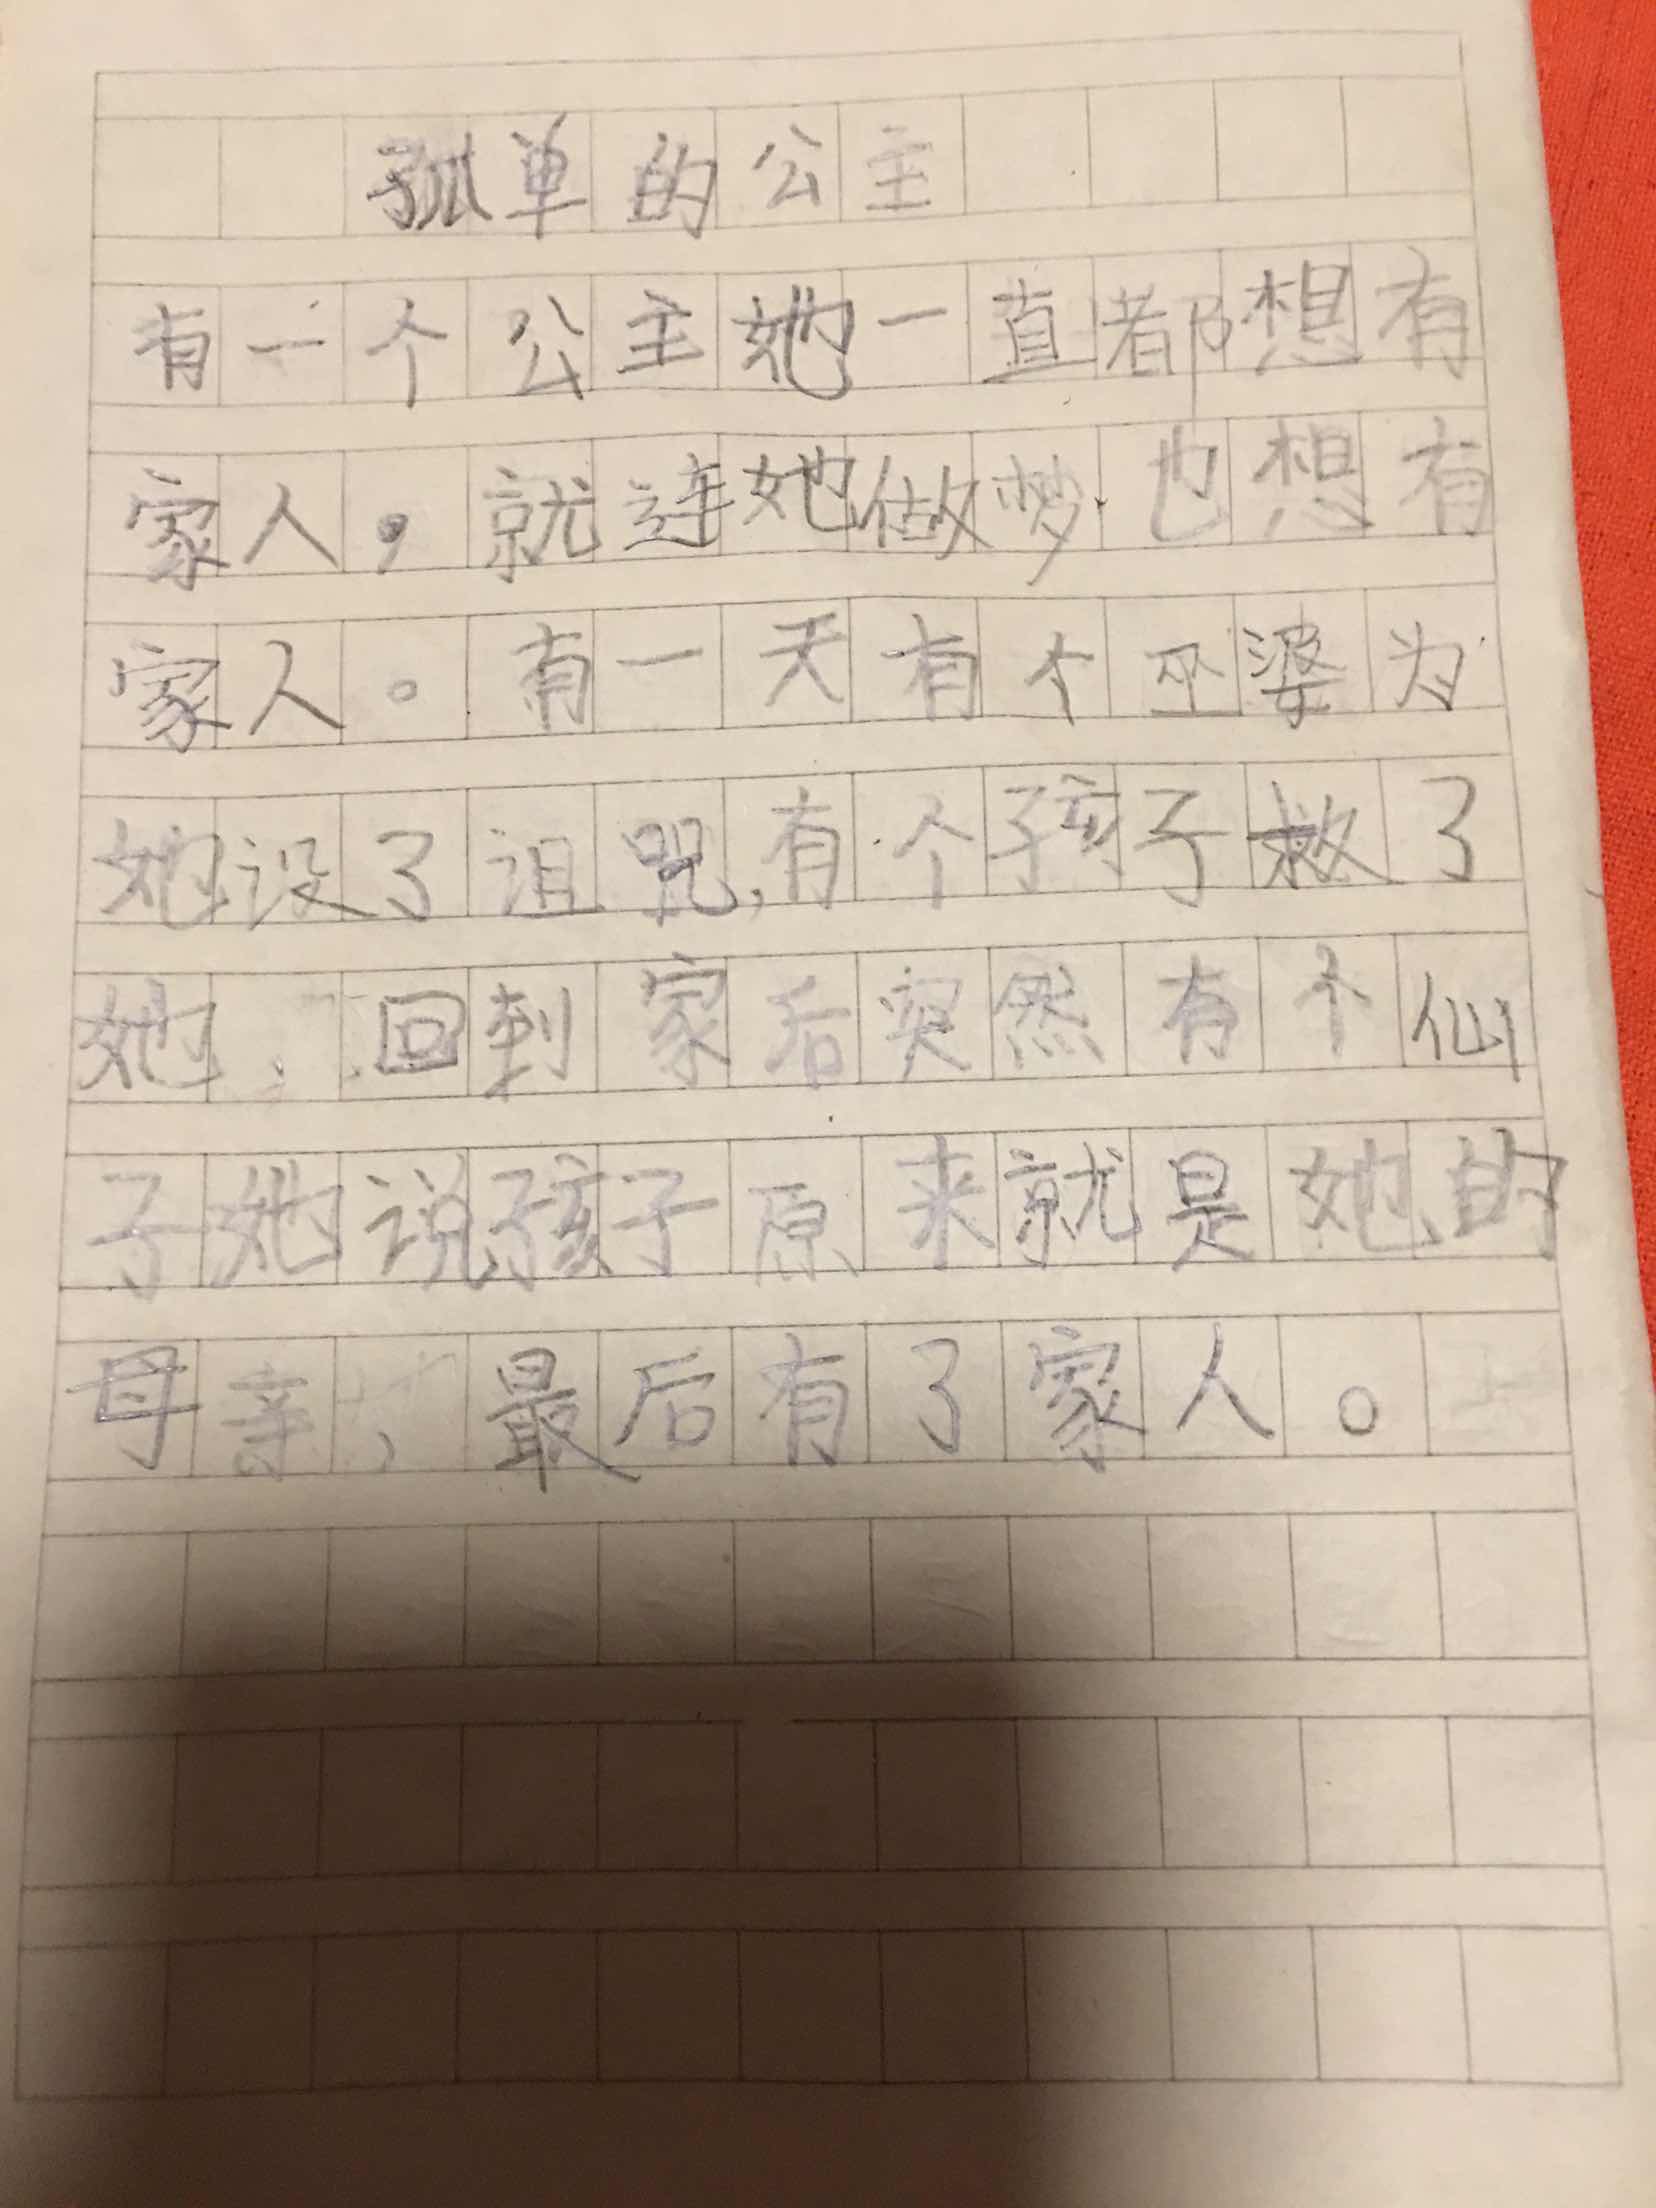 孤单的公主
有一个公主她一直都想有
家人，就连她做梦也想有
家人。有一天有个巫婆为
她设了诅咒，有个孩子救了
她，回到家后突然有个仙
子她说孩子原来就是她的
母亲，最后有了家人。